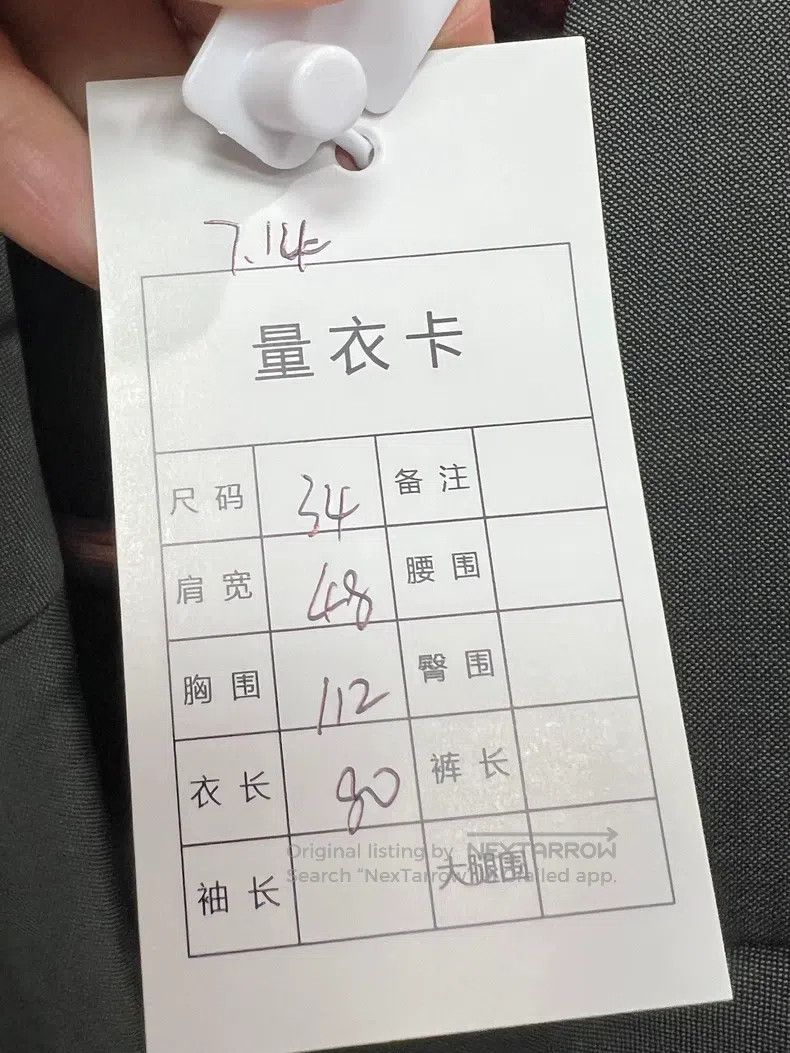 7.14
量衣卡
尺码 34 备注
肩宽 48 腰围
胸围 112 臀围
衣长 80 裤长
袖长 大腿围
Original listing by NEXTARROW
Search "NexTarrow"